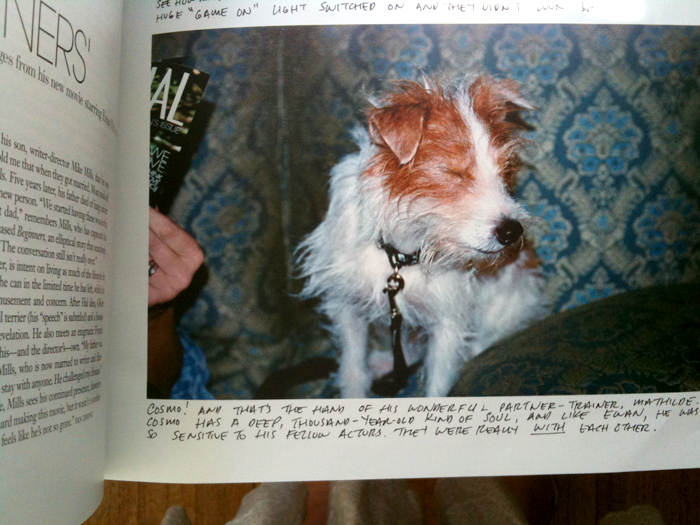 NERS'
ges from his new movie starring
his son, writer-director Mike Mills, that
old me that when they got married,
ls. Five years later, his father died of lung cancer
new person. "We started having these
t dad," remembers Mills, who has
ased Beginners, an elliptical story that
The conversation still isn't really over."
er, is intent on living as much of the
she can in the limited time he has left, which
musement and concern. After Hal dies,
l terrier (his "speech" is subtitled) and
evelation. He also meets an enigmatic French
his—and the director's—own. "My father
Mills, who is now married to writer and
stay with anyone. He challenged my
e, Mills sees his continued presence, however
ard making this movie, but it wasn't
feels like he's not so gone."
SEE HOW
HUGE "GAME ON" LIGHT SWITCHED ON AND THEY DIDN'T LOOK
IAL
ISSUE
COSMO! AND THAT'S THE HAND OF HIS WONDERFUL PARTNER-TRAINER, MATHILDE.
COSMO HAS A DEEP, THOUSAND-YEAR-OLD KIND OF SOUL, AND LIKE EWAN, HE WAS
SO SENSITIVE TO HIS FELLOW ACTORS. THEY WERE REALLY WITH EACH OTHER.